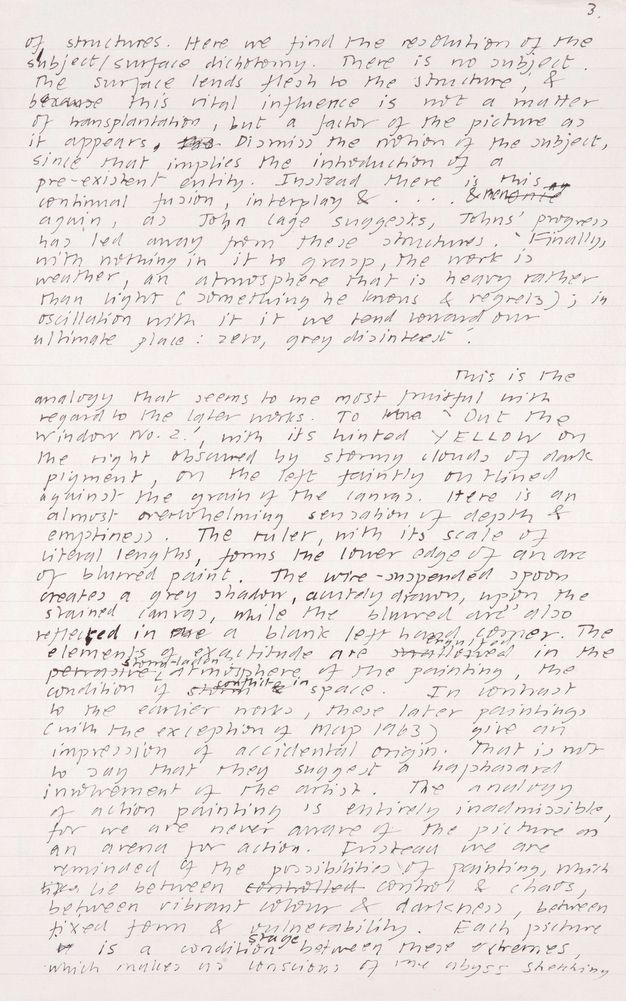 3.
of structures. Here we find the resolution of the
subject/surface dichotomy. There is no subject.
The surface lends flesh to the structure, &
because this vital influence is not a matter
of transplantation, but a factor of the picture as
it appears, Dismiss the notion of the subject,
since that implies the introduction of a
pre-existent entity. Instead there is this
continual fusion, interplay & . . . .
again, as John Cage suggests, Johns' progress
has led away from these structures. 'Finally,
with nothing in it to grasp, the work is
weather, an atmosphere that is heavy rather
than light (something he knows & regrets); in
oscillation with it it we tend toward our
ultimate place: zero, grey disinterest'.
This is the
analogy that seems to me most fruitful with
regard to the later works. To 'Out the
Window No. 2.', with its hinted YELLOW on
the right obscured by stormy clouds of dark
pigment, on the left faintly outlined
against the grain of the canvas. Here is an
almost overwhelming sensation of depth &
emptiness. The ruler, with its scale of
literal lengths, forms the lower edge of an arc
of blurred paint. The wire-suspended spoon
creates a grey shadow, acutely drawn, upon the
stained canvas, while the blurred arc also
reflected in a blank left hand corner. The
elements of exactitude are in the
atmosphere of the painting the
condition of space. In contrast
to the earlier works, these later paintings
(with the exception of Map 1963) give an
impression of accidental origin. That is not
to say that they suggest a haphazard
involvement of the artist. The analogy
of action painting is entirely inadmissible,
for we are never aware of the picture as
an arena for action. Instead we are
reminded of the possibilities of painting, which
lie between controlled control & chaos,
between vibrant colour & darkness, between
fixed form & vulnerability. Each picture
stage
is a condition between these extremes,
which makes us conscious of the abyss